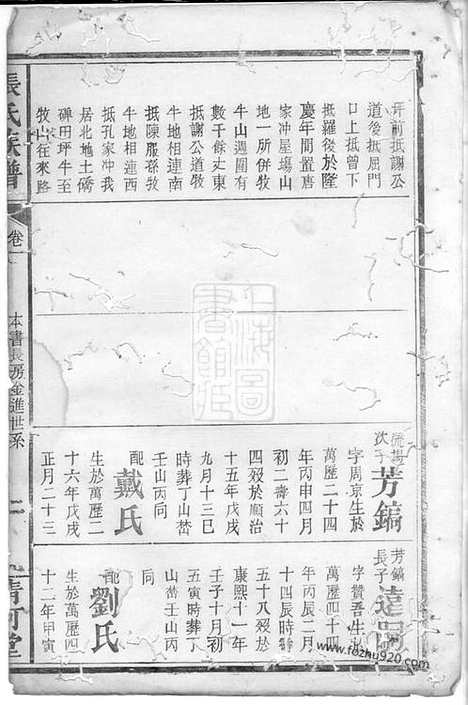 坪前抵謝公
道後抵屈門
口上抵曾下
抵羅後於隆
慶年間置唐
家冲星塲山
地一所併牧
牛山週圍有
數千餘丈東
抵謝公道牧
牛地相連南
抵陳服孫牧
牛地相連西
抵孔家冲我
居北地土嶠
磾田坪牛至
牧山在來路
次子芳鎬
字周京生於
萬歷二十四
年丙申四月
初二壽六十
四歿於順治
十五年戊戌
九月十三巳
時葬丁山嵆
壬山丙同
配戴氏
生於萬歷二
十六年戊戌
正月二十三
芳鎬
長子達
字贊吾生於
萬歷四十四
年丙辰二月
十四辰時壽
五十八歿於
康熙十一年
壬子十月初
五寅時葬丁
山嵆壬山丙
同
配劉氏
生於萬歷四
十二年甲寅
張氏族譜
卷一
本書長房金進世系
清河堂
www.fozhu920.com